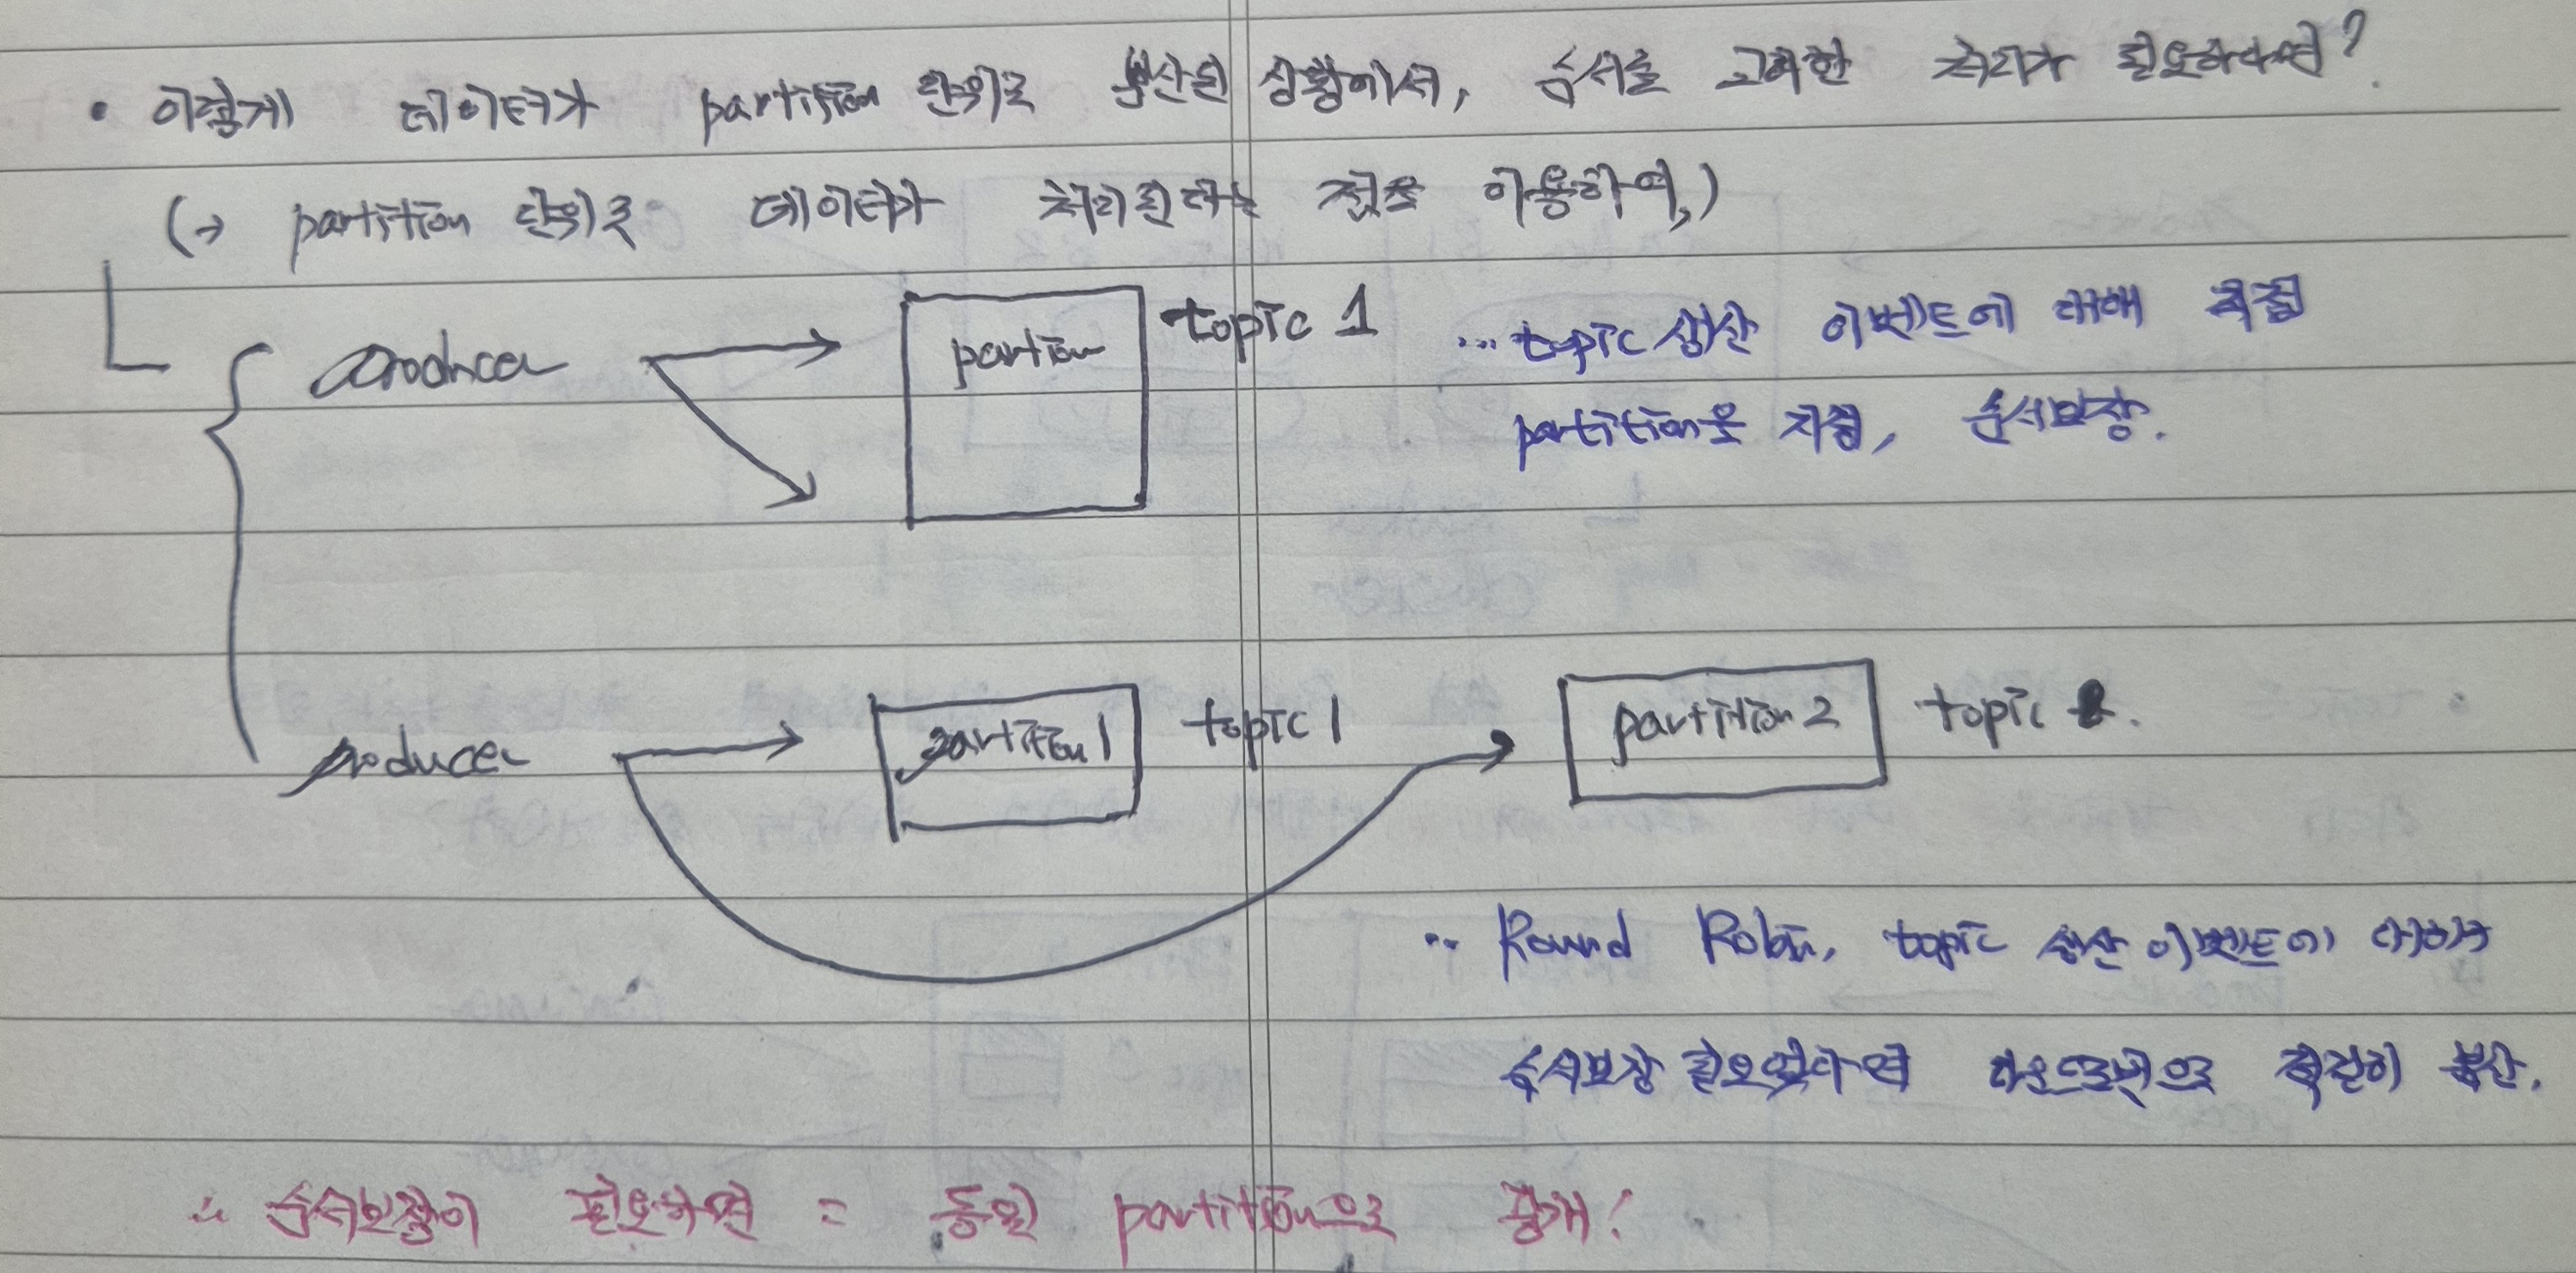 • 이렇게 데이터가 partition 단위로 분산된 상황에서, 순서를 고려한 처리가 필요하다면?
(→ partition 단위로 데이터가 처리된다는 점을 이용하여,)
producer
partion
topic 1
... topic 생산 이벤트에 대해 직접
partition을 지정, 순서보장.
producer
partition 1
topic 1
partition 2
topic
.. Round Robin, topic 생산 이벤트에 대해서
순서보장 필요없다면 라운드로빈으로 적절히 분산.
∴ 순서보장이 필요하면 = 동일 partition으로